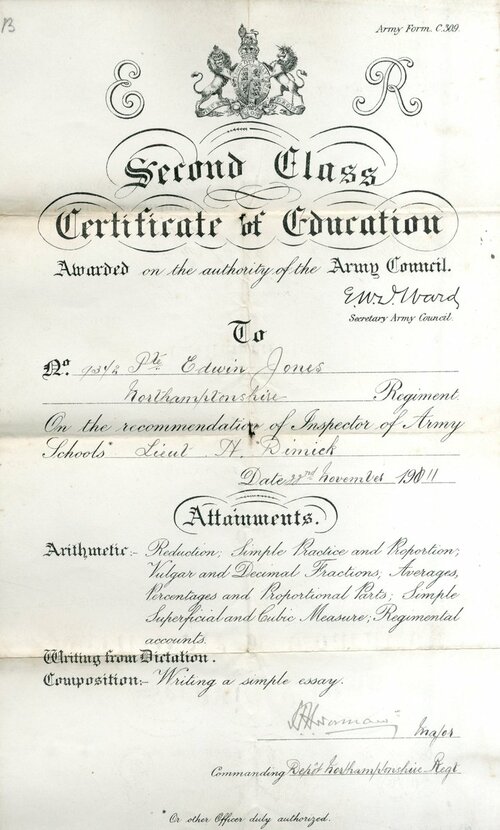 B
Army Form C.309.
E R
Second Class
Certificate of Education
Awarded on the authority of the Army Council.
E.W.D. Ward
Secretary Army Council.
To
No. Pte Edwin Jones
Northamptonshire Regiment
On the recommendation of Inspector of Army
Schools* Lieut H. Dimick
Date 22nd November 1911
Attainments.
Arithmetic:- Reduction; Simple Practice and Proportion;
Vulgar and Decimal Fractions; Averages,
Percentages and Proportional Parts; Simple
Superficial and Cubic Measure; Regimental
accounts.
Writing from Dictation.
Composition:- Writing a simple essay.
Major
Commanding Depôt Northamptonshire Regt
* Or other Officer duly authorized.